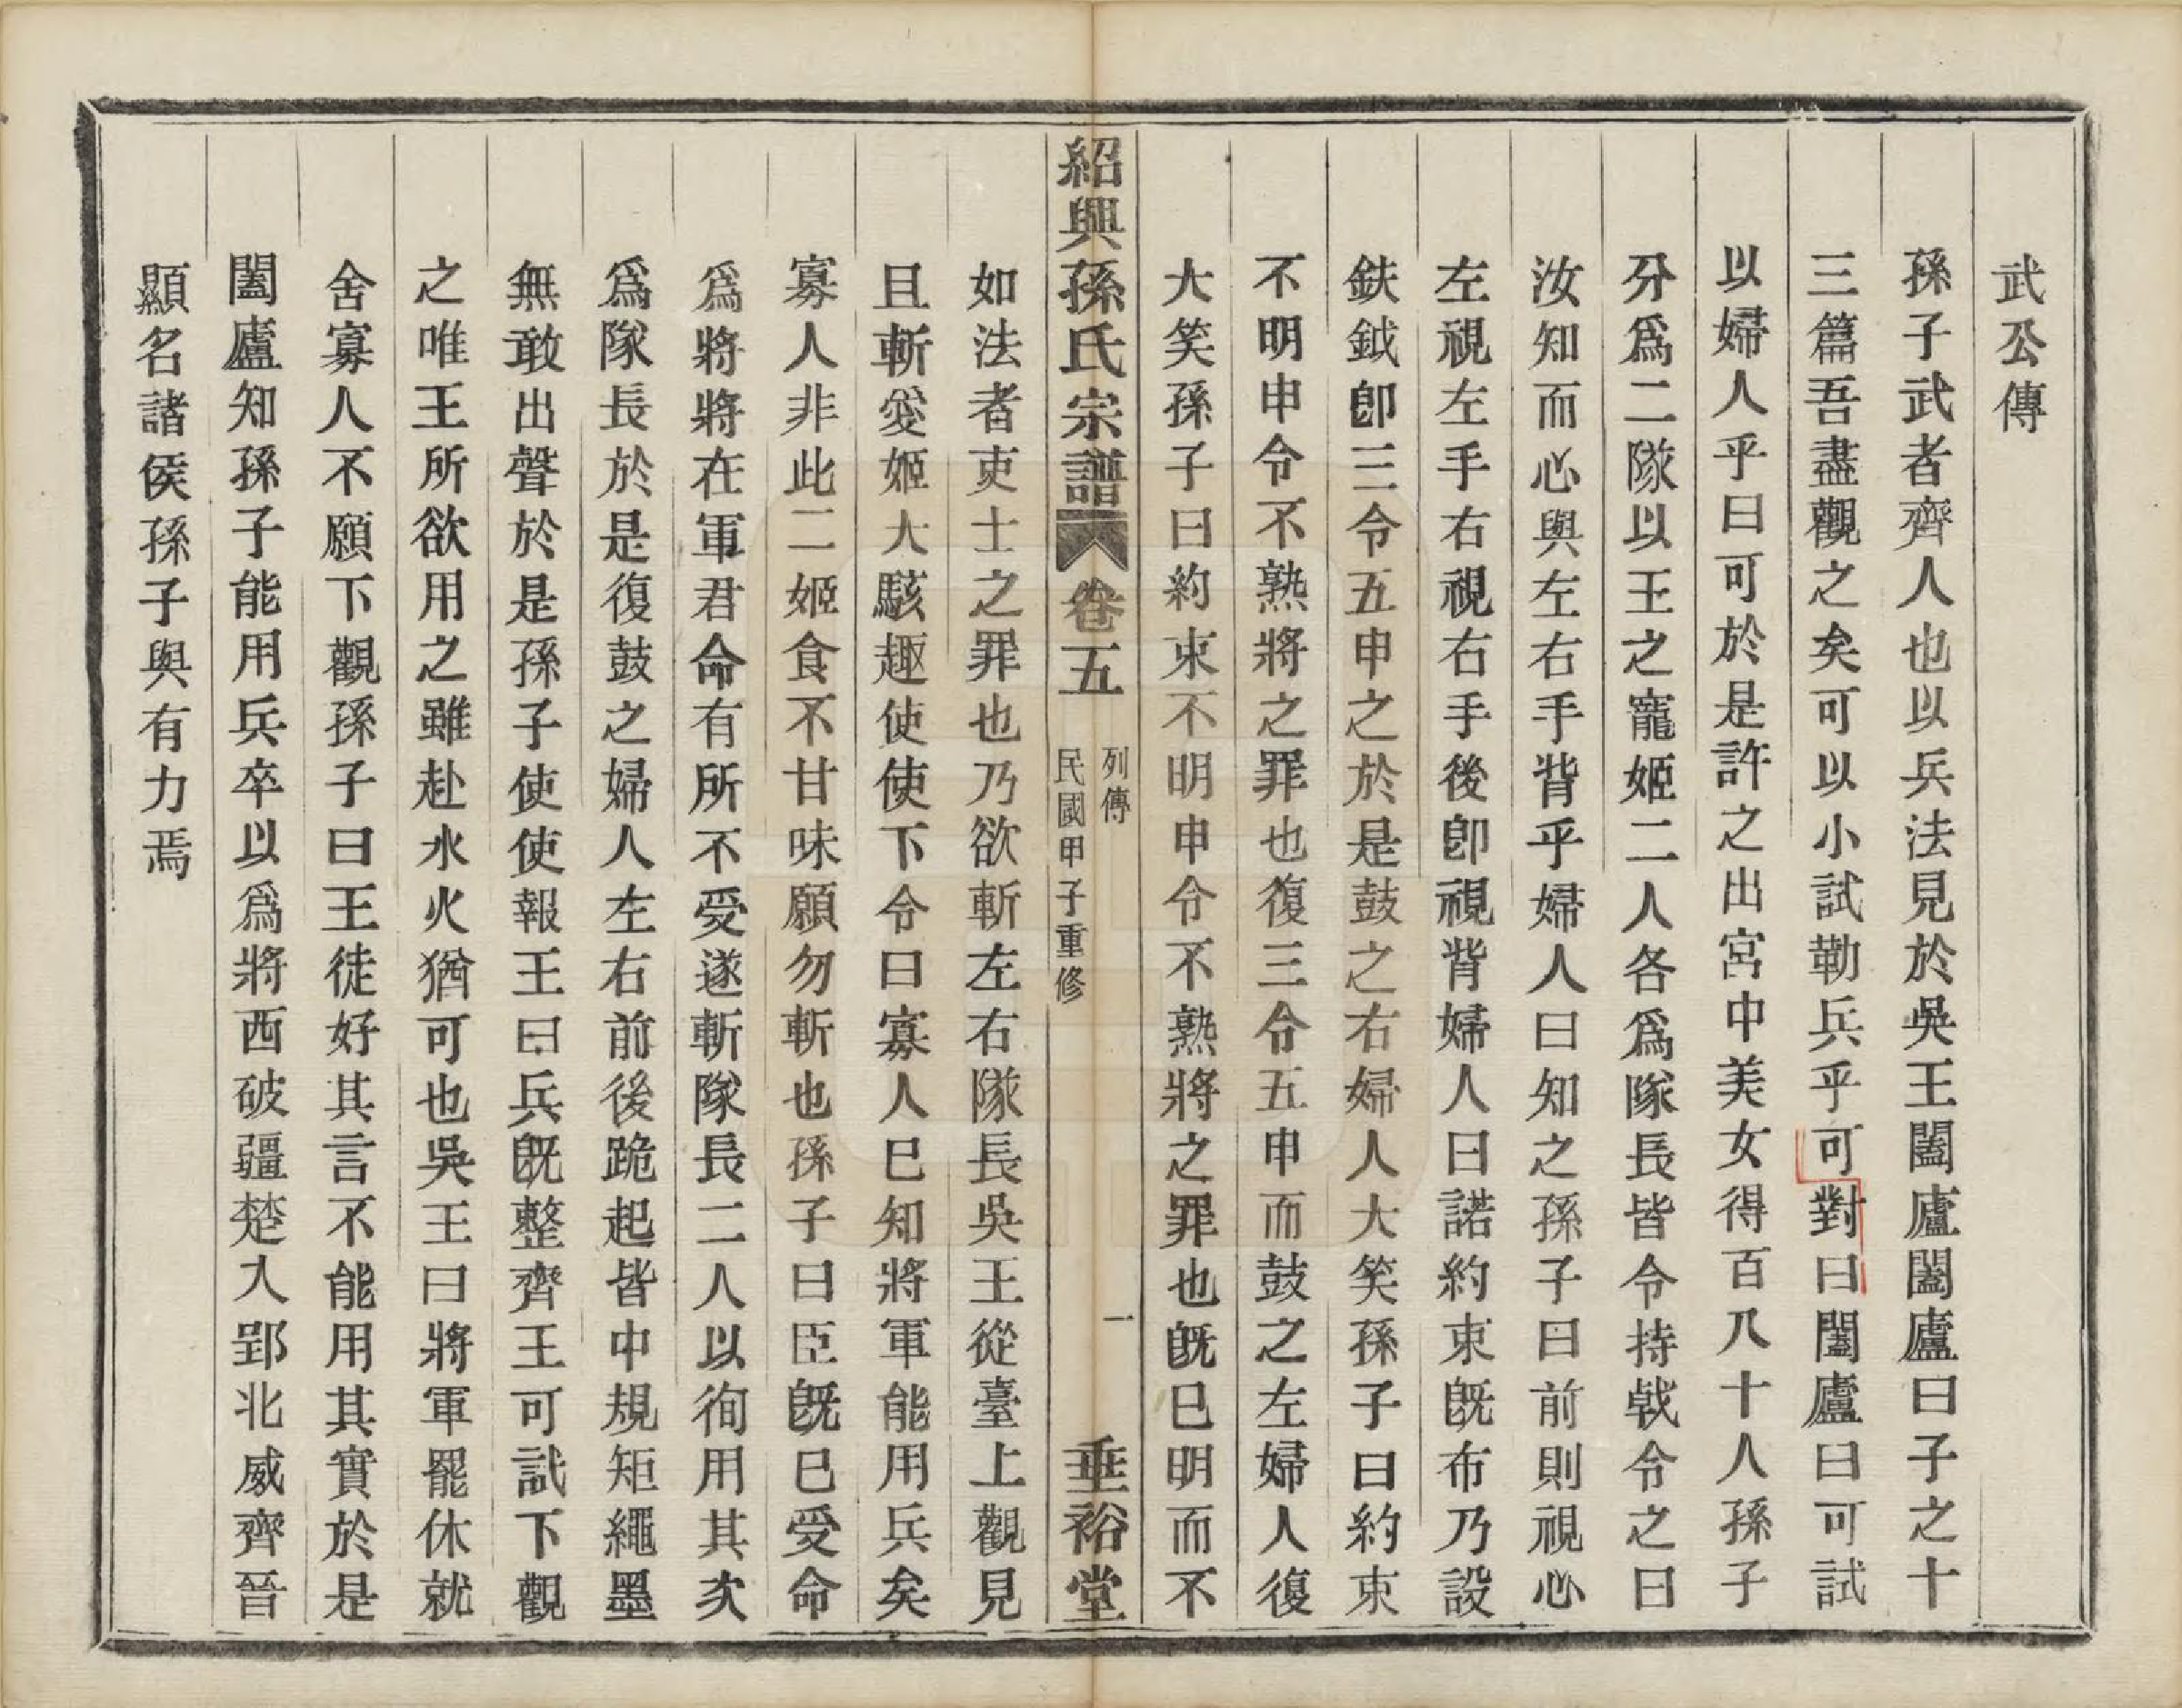 武公傳
孫子武者齊人也以兵法見於吳王闔廬闔廬曰子之十
三篇吾盡觀之矣可以小試勒兵乎可對曰闔廬曰可試
以婦人乎曰可於是許之出宮中美女得百八十人孫子
分爲二隊以王之寵姬二人各爲隊長皆令持戟令之曰
汝知而心與左右手背乎婦人曰知之孫子曰前則視心
左視左手右視右手後卽視背婦人曰諾約束旣布乃設
鈇鉞卽三令五申之於是鼓之右婦人大笑孫子曰約束
不明申令不熟將之罪也復三令五申而鼓之左婦人復
大笑孫子曰約束不明申令不熟將之罪也旣已明而不
紹興孫氏宗譜 卷五
列傳
民國甲子重修
一
垂裕堂
如法者吏士之罪也乃欲斬左右隊長吳王從臺上觀見
且斬愛姬大駭趣使使下令曰寡人已知將軍能用兵矣
寡人非此二姬食不甘味願勿斬也孫子曰臣旣已受命
爲將將在軍君命有所不受遂斬隊長二人以徇用其次
爲隊長於是復鼓之婦人左右前後跪起皆中規矩繩墨
無敢出聲於是孫子使使報王曰兵旣整齊王可試下觀
之唯王所欲用之雖赴水火猶可也吳王曰將軍罷休就
舍寡人不願下觀孫子曰王徒好其言不能用其實於是
闔廬知孫子能用兵卒以爲將西破疆楚入郢北威齊晉
顯名諸侯孫子與有力焉